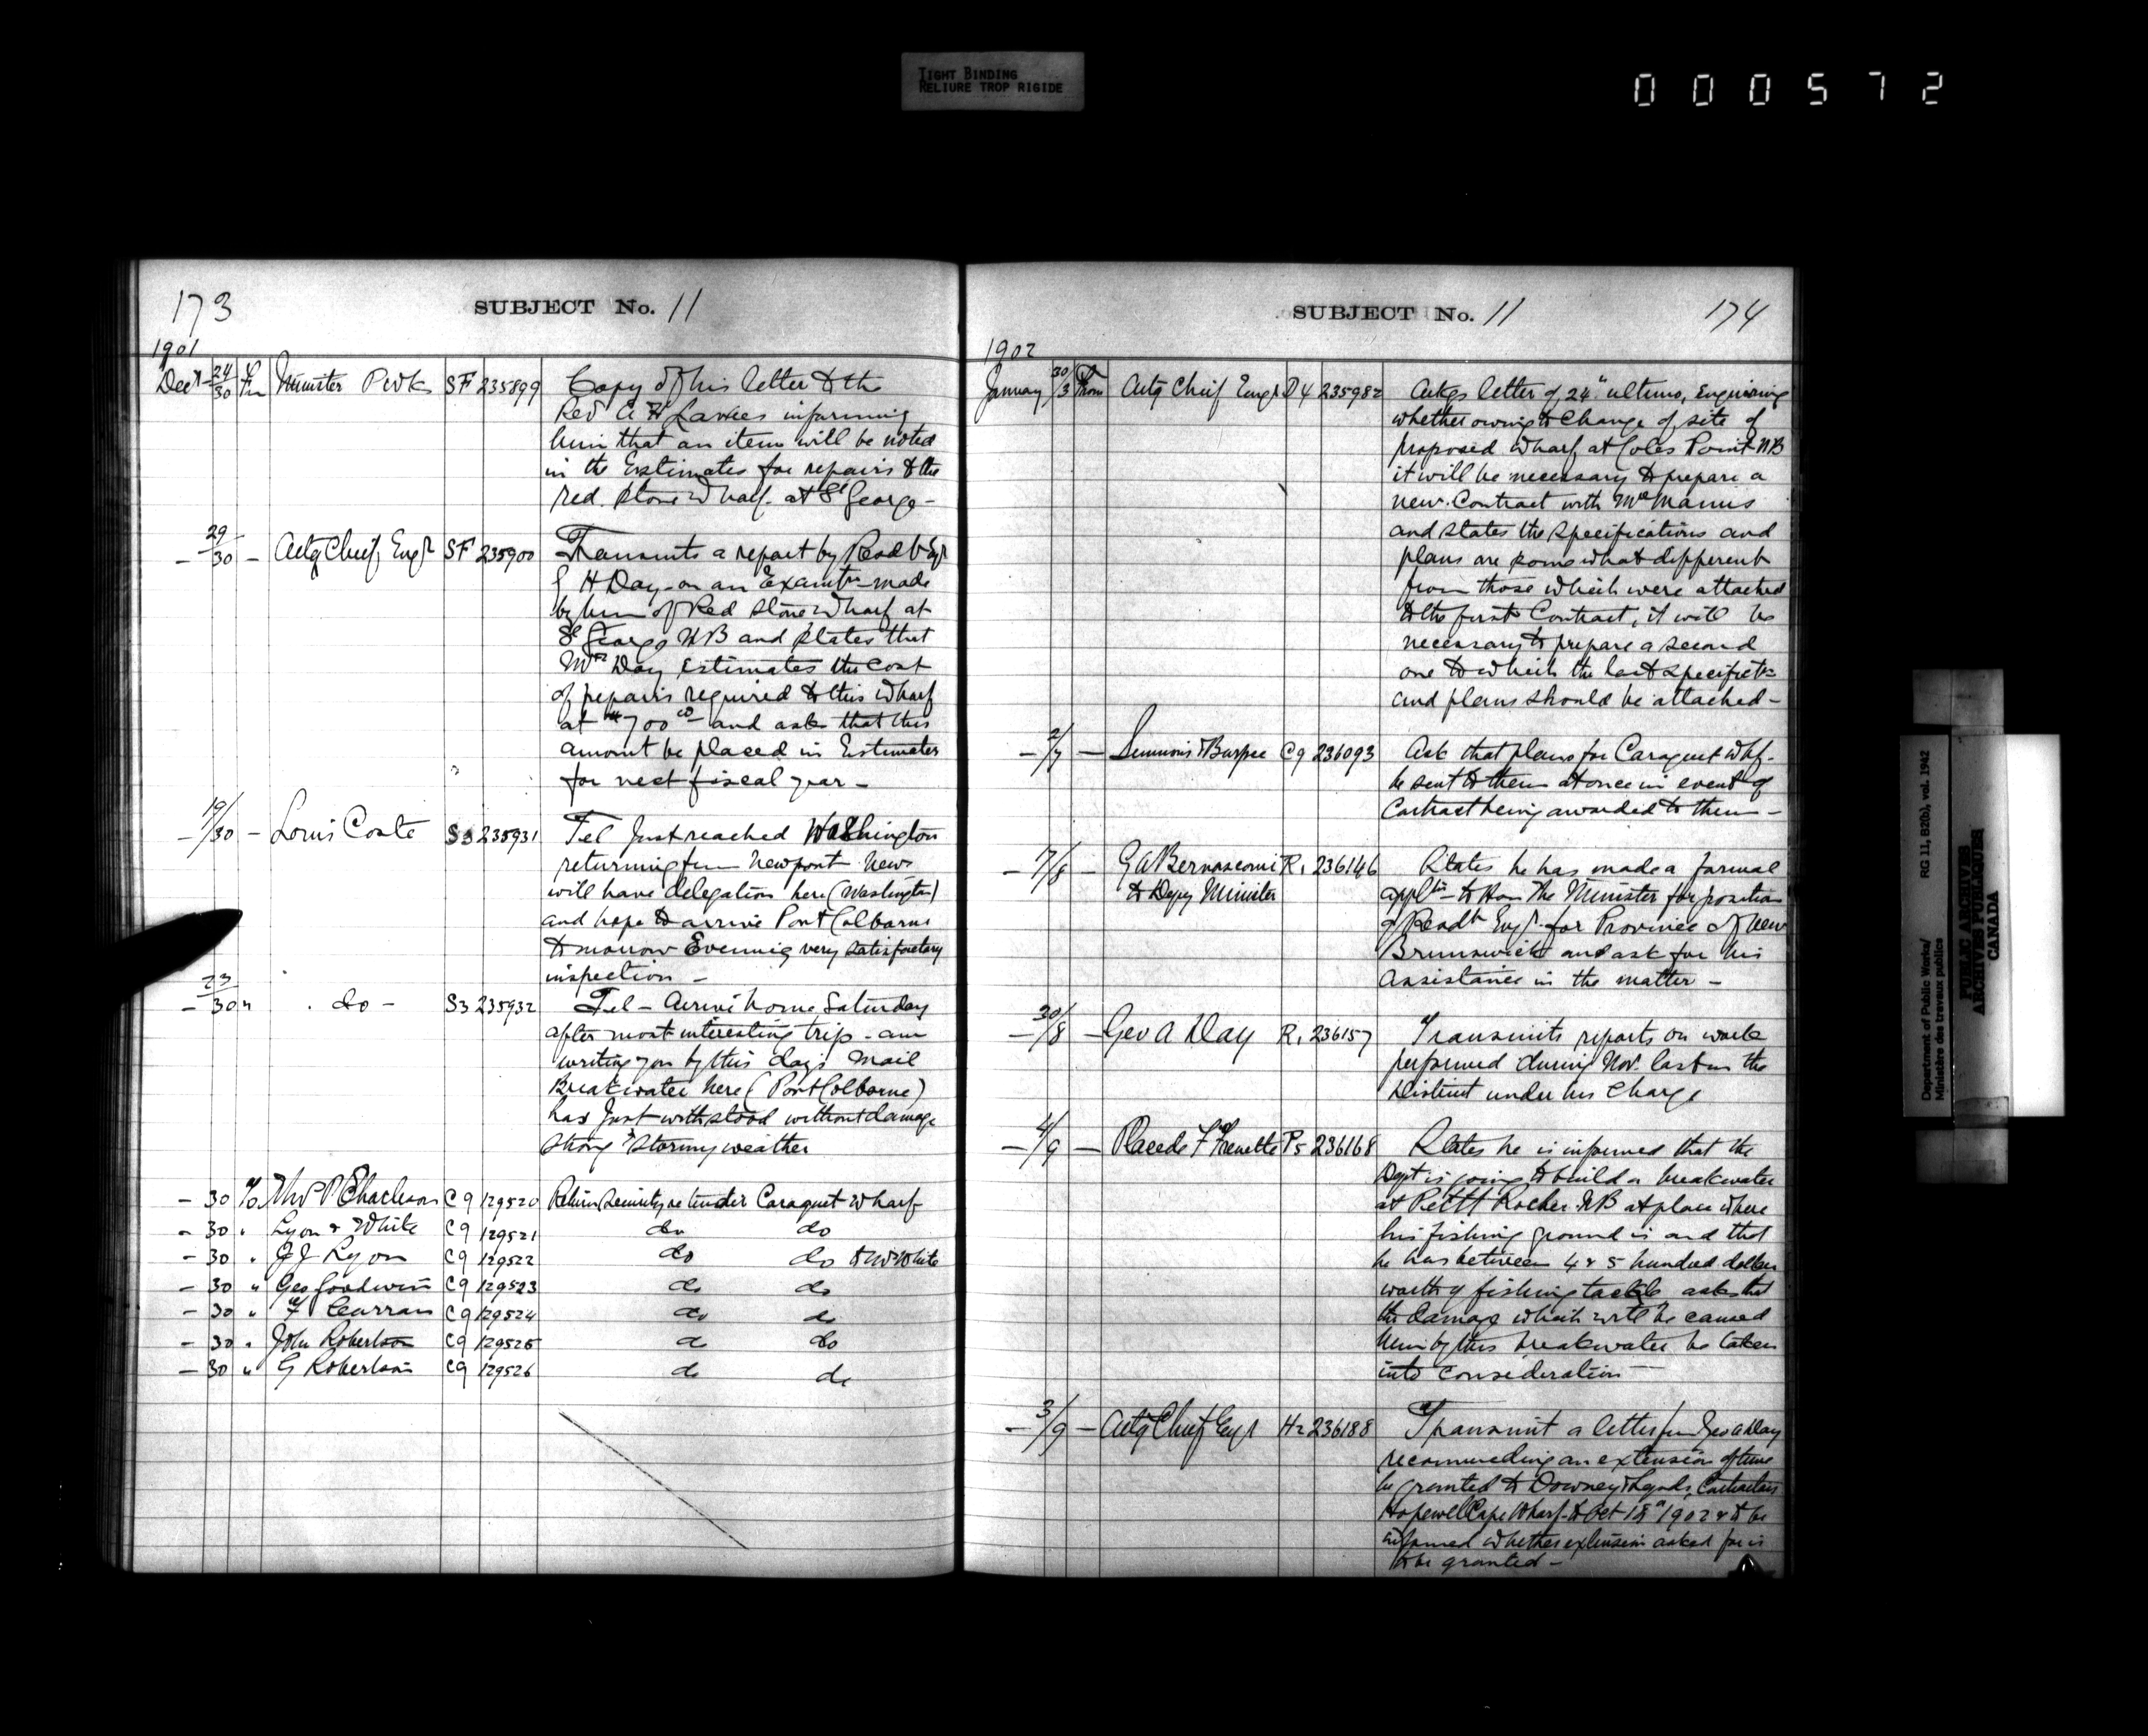 TIGHT BINDING
RELIURE TROP RIGIDE
000572
173
SUBJECT No. 11
1901
Decr 24/30 Fm Minister Pwks SF 235899 Copy of his letter to the
Revd informing
him that an item will be noted
in the Estimates for repairs to the
red stone wharf at St George -
- 29/30 - Actg Chief Engr SF 235900 Transmits a report by Resdt Engr
G H Day on an Examtn made
by him of Red stone wharf at
St George NB and states that
Mr Day Estimates the cost
of repairs required to this wharf
at $700 00 and asks that this
amount be placed in Estimates
for next fiscal year -
- 19/30 - Louis Coste S3 235931 Tel Just reached Washington
returning fm Newport News
will have delegation here (Washington)
and hope to arrive Port Colborne
tomorrow Evening very satisfactory
inspection -
- 23/30 " do - S3 235932 Tel - Arrive home Saturday
after most interesting trip - am
writing you by this days mail
Breakwater here (Port Colborne)
has just withstood without damage
strong & stormy weather
- 30 To P Charleson C9 129520 Return Security re tender Caraquet wharf
- 30 " Lyon & White C9 129521 do do
- 30 " J J Lyon C9 129522 do do & W White
- 30 " Geo Goodwin C9 129523 do do
- 30 " Curran C9 129524 do do
- 30 " John Robertson C9 129525 do do
- 30 " G Robertson C9 129526 do do
SUBJECT No. 11
174
1902
January 30/3 From Actg Chief Engr D4 235982 Ackgs letter of 24" ultimo, Enquiring
whether owing to change of site of
proposed wharf at Coles Point NB
it will be necessary to prepare a
new Contract with McManus
and states the specifications and
plans are somewhat different
from those which were attached
to the first Contract, it will be
necessary to prepare a second
one to which the last specifictns
and plans should be attached -
- 2/7 - Simmons & Burpee C9 236093 Ask that plans for Caraquet Whf.
be sent to them at once in event of
Contract being awarded to them -
- 7/8 - G A Bernasconi R1 236146 States he has made a formal
to Depy Minister appltn to Hon The Minister for position
of Resdt Engr for Province of New
Brunswick and ask for his
Assistance in the matter -
- 30/8 - Geo A Day R1 236157 Transmits reports on works
performed during Nov. last in the
District under his Charge
- 4/9 - Placede F Frenette P5 236168 States he is informed that the
Dept is going to build a breakwater
at Petit Rocher NB at place where
his fishing ground is and that
he has between 4 & 5 hundred dollars
worth of fishing tackle asks that
the damage which will be caused
him by this breakwater be taken
into consideration
- 3/9 - Actg Chief Engr H2 236188 Transmit a letter from Geo A Day
recommending an extension of time
be granted to Downey & Contractors
Hopewell Cape Wharf to Oct 15th 1902 & to be
informed whether extension asked for is
to be granted -
Department of Public Works/
Ministère des travaux publics
RG 11, B2(b), vol. 1942
PUBLIC ARCHIVES
ARCHIVES PUBLIQUES
CANADA